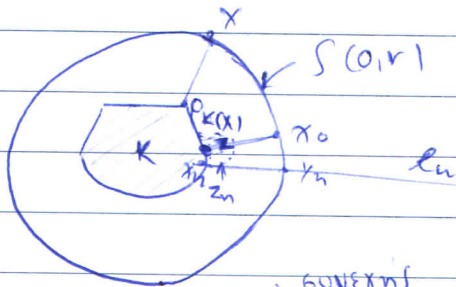 x
S(0,r)
P_K(x)
x_0
K
x_n z_n y_n l_n